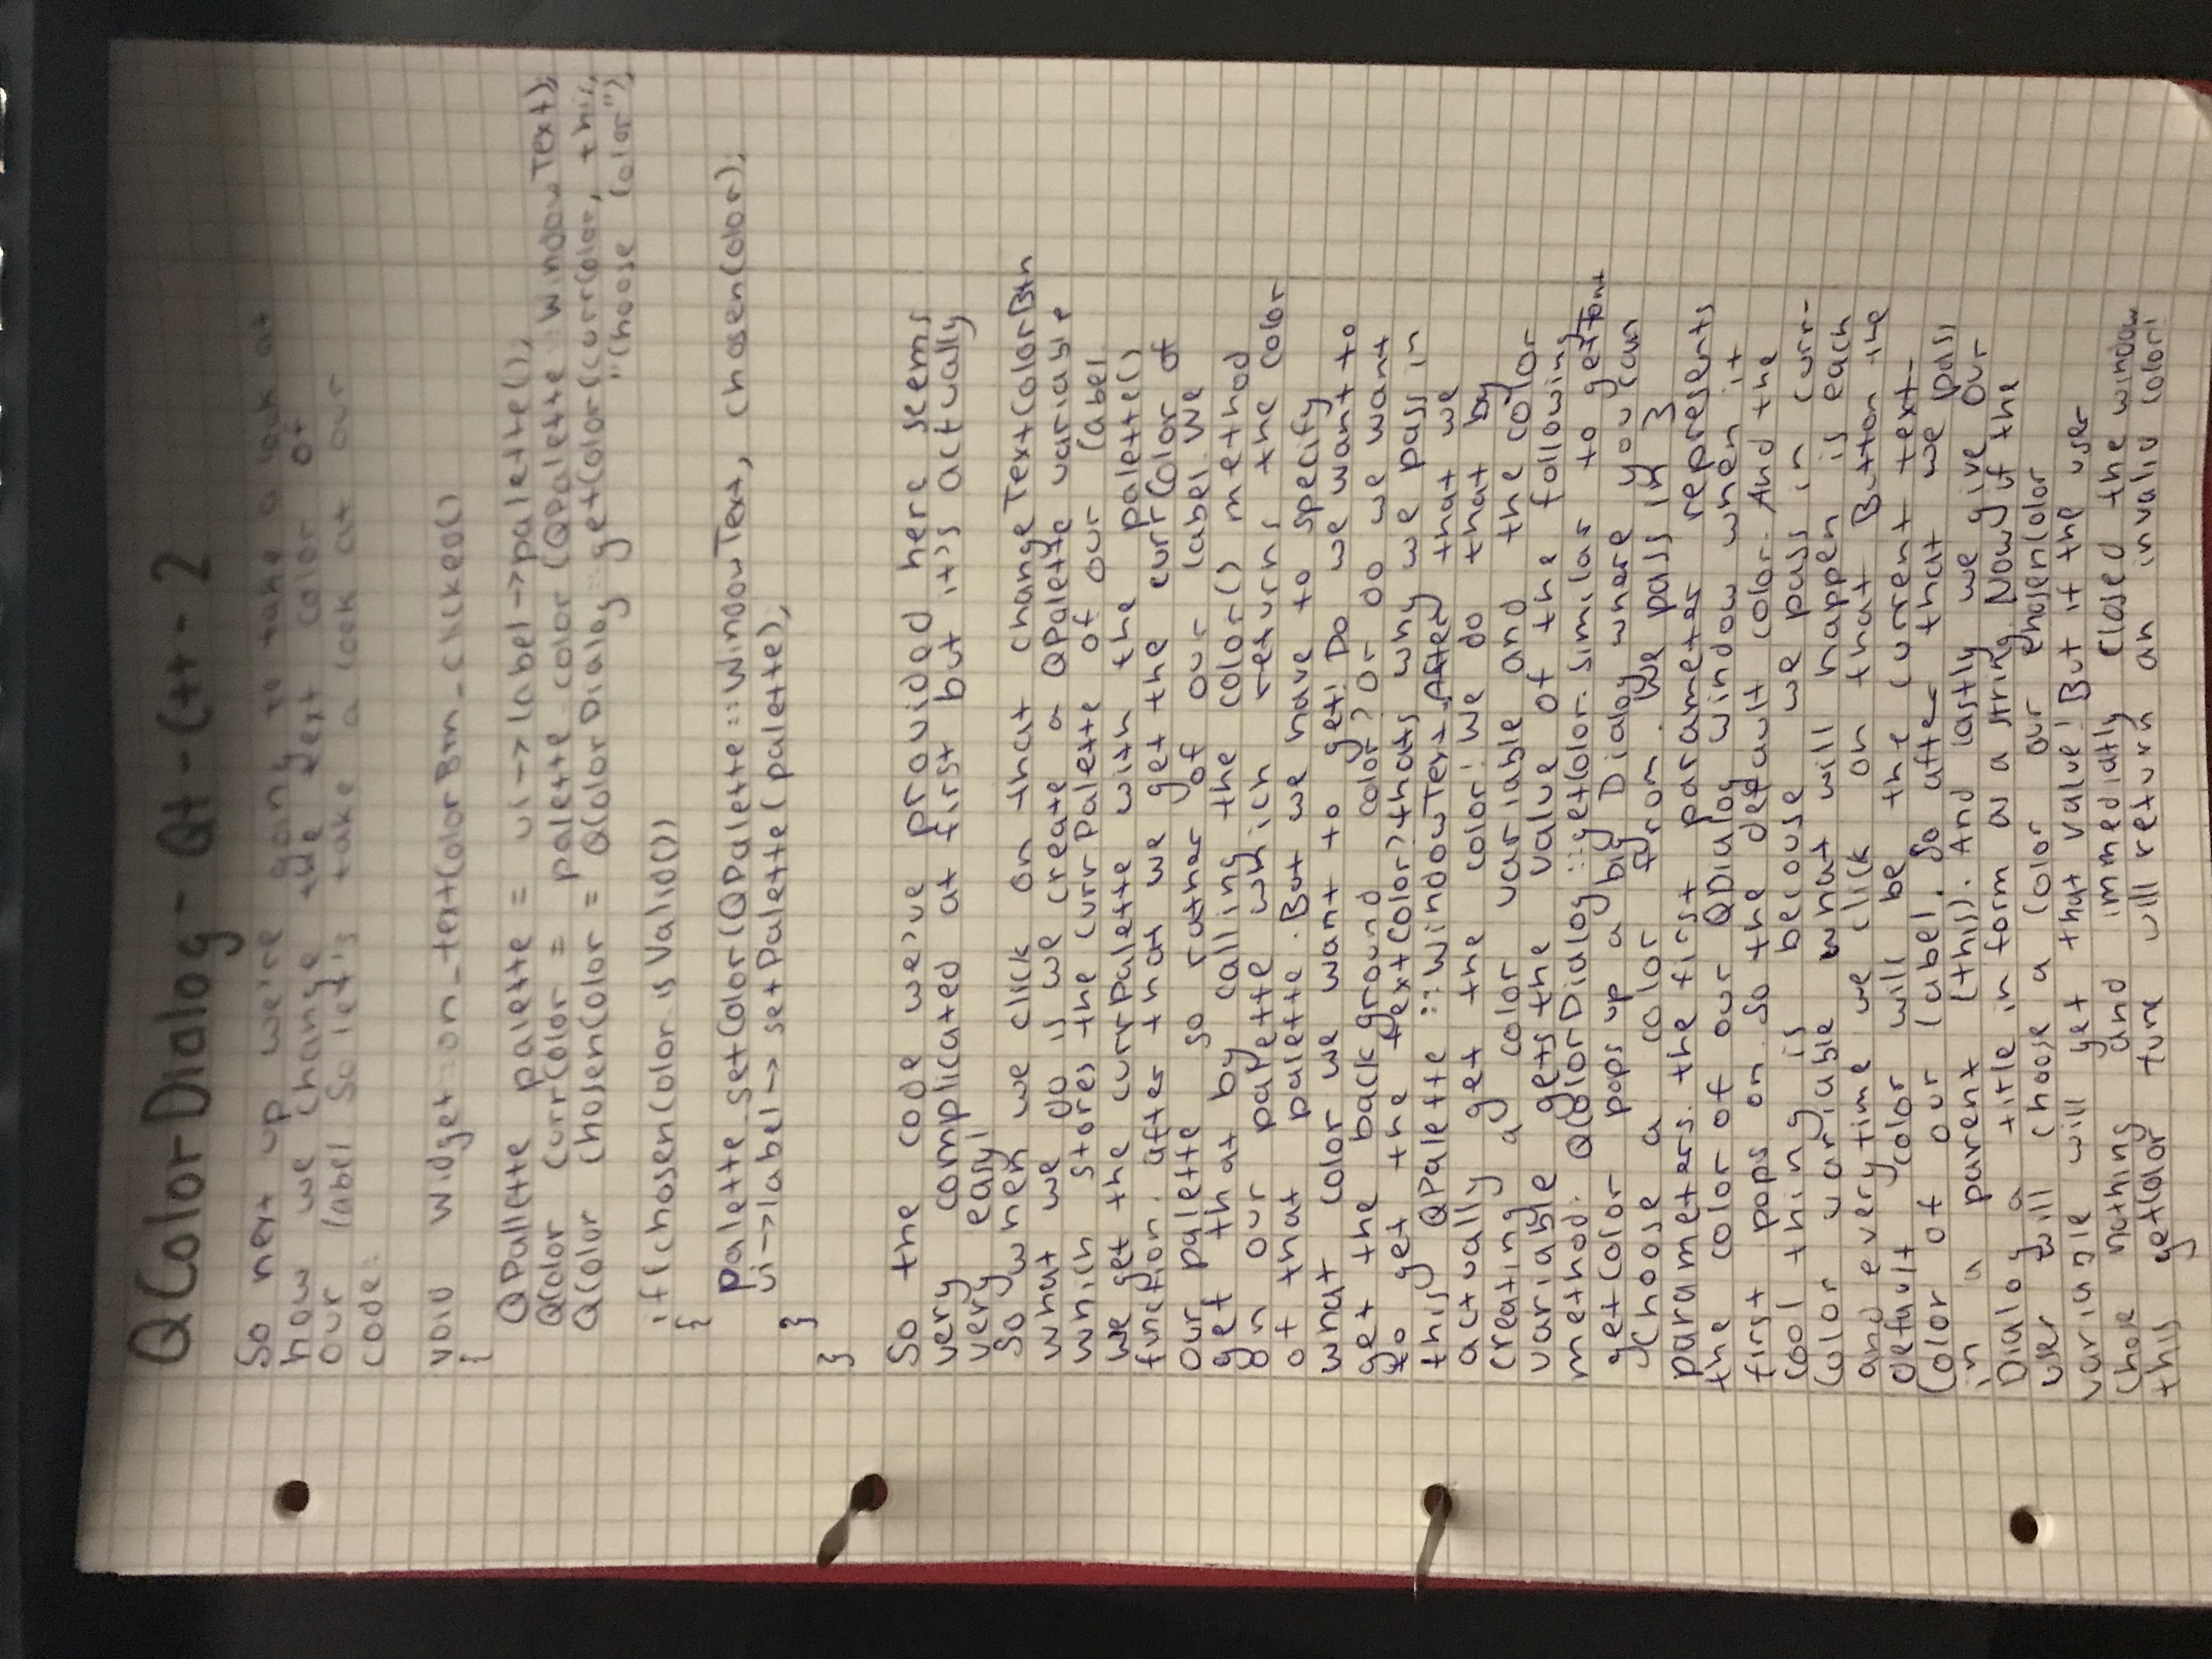 QColorDialog - Qt - C++ - 2
So next up we're going to take a look at
how we change the text color of
our label So let's take a look at our
code:
void Widget::on_textColorBtn_clicked()
{
QPallette palette = ui->label->palette();
QColor currColor = palette.color(QPalette::WindowText);
QColor chosenColor = QColorDialog::getColor(currColor, this,
"Choose Color");
if(chosenColor.isValid())
{
palette.setColor(QPalette::WindowText, chosenColor);
ui->label->setPalette(palette);
}
}
So the code we've provided here seems
very complicated at first but it's actually
very easy!
So when we click on that changeTextColorBtn
what we do is we create a QPalette variable
which stores the currPalette of our label.
We get the currPalette with the palette()
function. after that we get the currColor of
our palette so rather of our label. We
get that by calling the color() method
on our palette which returns the color
of that palette. But we have to specify
what color we want to get! Do we want to
get the background color? Or do we want
to get the textColor? thats why we pass in
this QPalette::WindowText. After that we
actually get the color! We do that by
creating a color variable and the color
variable gets the value of the following
method: QColorDialog::getColor. Similar to getFont
getColor pops up a big Dialog where you can
choose a color from. We pass in 3
parameters. the first parameter represents
the color of our QDialog window when it
first pops on. So the default color. And the
cool thing is becouse we pass in curr-
Color variable what will happen is each
and everytime we click on that Button the
default color will be the current text-
Color of our label. So after that we pass
in a parent (this). And lastly we give our
Dialog a title in form as a string. Now if the
user will choose a color our chosenColor
variable will get that value! But if the user
chose nothing and immediatly closed the window
this getColor func will return an invalid color!